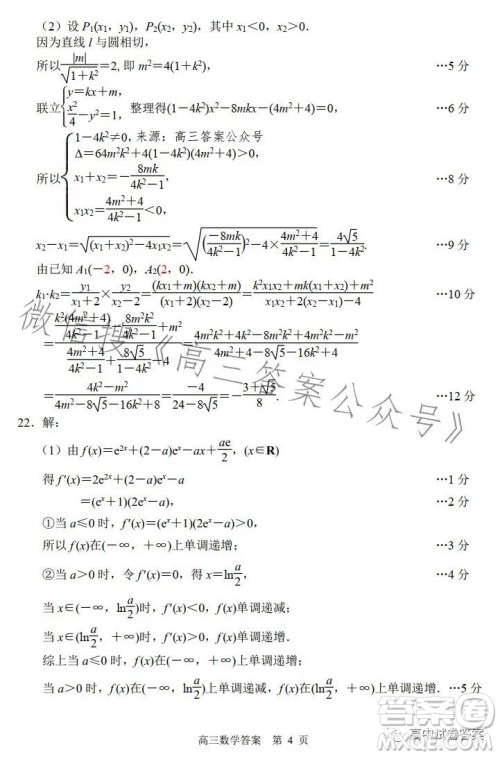 （2）设 P₁(x₁，y₁)，P₂(x₂，y₂)，其中 x₁<0，x₂>0．
因为直线 l 与圆相切，
所以|m|/√(1+k²)=2, 即 m²=4(1+k²)， …5 分
联立{y=kx+m, x²/4−y²=1, 整理得(1−4k²)x²−8mkx−4m²−4=0， …6 分
所以{1−4k²≠0，来源：高三答案公众号
Δ=64m²k²+4(1−4k²)(4m²+4)>0，
x₁+x₂=−8mk/(4k²−1)，
x₁x₂=(4m²+4)/(4k²−1)<0， …8 分
x₂−x₁=√((x₁+x₂)²−4x₁x₂)=√((−8mk/(4k²−1))²−4×(4m²+4)/(4k²−1))=4√5/(4k²−1)． …9 分
由已知 A₁(−2，0)，A₂(2，0)．
k₁·k₂=y₁/(x₁+2)×y₂/(x₂−2)=(kx₁+m)(kx₂+m)/((x₁+2)(x₂−2))=(k²x₁x₂+mk(x₁+x₂)+m²)/(x₁x₂+2(x₂−x₁)−4) …10 分
=4k²−m²/(4m²−8√5−16k²+8)=−4/(24−8√5)=−(3+√5)/8． …12 分
22．解：
（1）由 f(x)=e²ˣ+(2−a)eˣ−ax+ae/2，(x∈R)
得 f′(x)=2e²ˣ+(2−a)eˣ−a …1 分
=(eˣ+1)(2eˣ−a)， …2 分
①当 a≤0 时，f′(x)=(eˣ+1)(2eˣ−a)>0，
所以 f(x)在(−∞，+∞)上单调递增； …3 分
②当 a>0 时，令 f′(x)=0，得 x=ln a/2， …4 分
当 x∈(−∞，ln a/2)时，f′(x)<0，f(x)单调递减；
当 x∈(ln a/2，+∞)时，f′(x)>0，f(x)单调递增．
综上当 a≤0 时，f(x)在(−∞，+∞)上单调递增；
当 a>0 时，f(x)在(−∞，ln a/2)上单调递减，在(ln a/2，+∞)上单调递增．…5 分
高三数学答案 第 4 页
微信搜《高三答案公众号》
高中试卷答案
答案圈
MXQE.COM